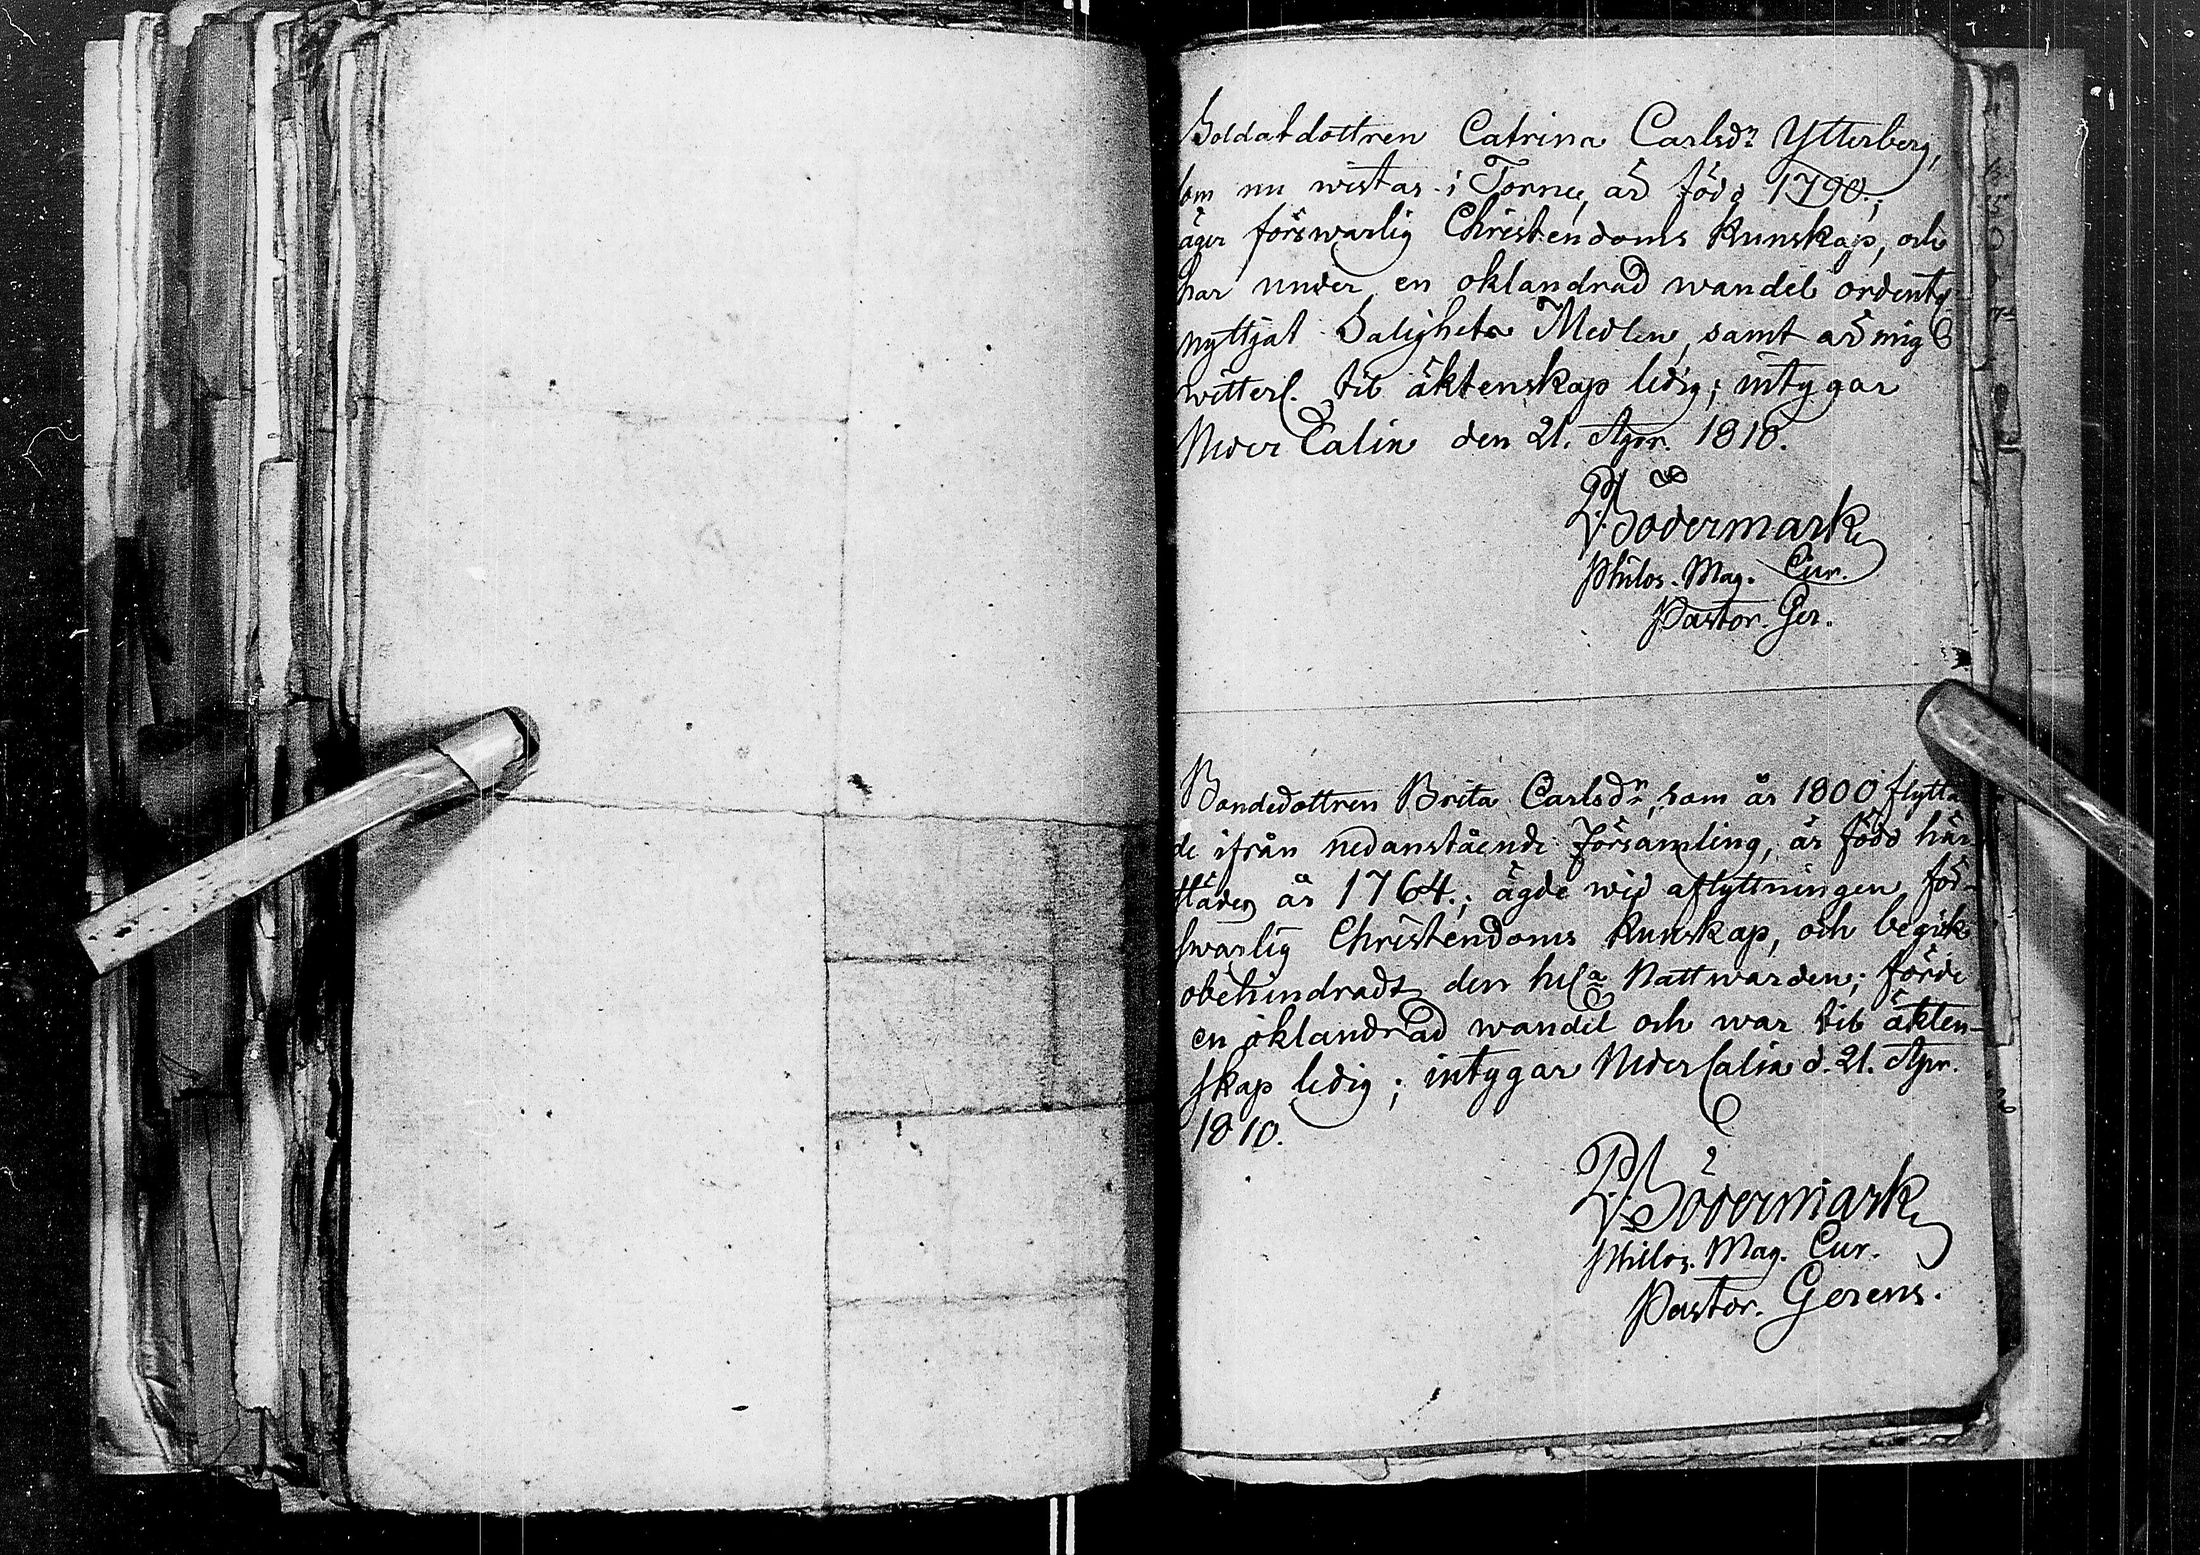 Soldatdottren Catrina Carlsdr Ytterberg,
som nu wistas i Torneå, är född 1790.;
äger förswarlig Christendoms Kunskap, och
har under en oklandrad wandel ordentl.
nyttjat Salighets Medlen, samt är mig
witterl. til äktenskap ledig; intygar
Neder Calix den 21. Apr. 1810.
P. Södermark
Philos. Mag. Cur.
Pastor. Ger.
Bondedottren Brita Carlsdr, som år 1800 flytta-
de ifrån nedanstående Församling, är född här-
städes år 1764.; ägde wid aflyttningen för-
swarlig Christendoms Kunskap, och begick
obehindradt den hela Nattwarden; förde
en oklandrad wandel och war til äkten-
skap ledig; intygar Neder Calix d. 21. Apr.
1810.
P. Södermark
Philos. Mag. Cur.
Pastor. Gerens.